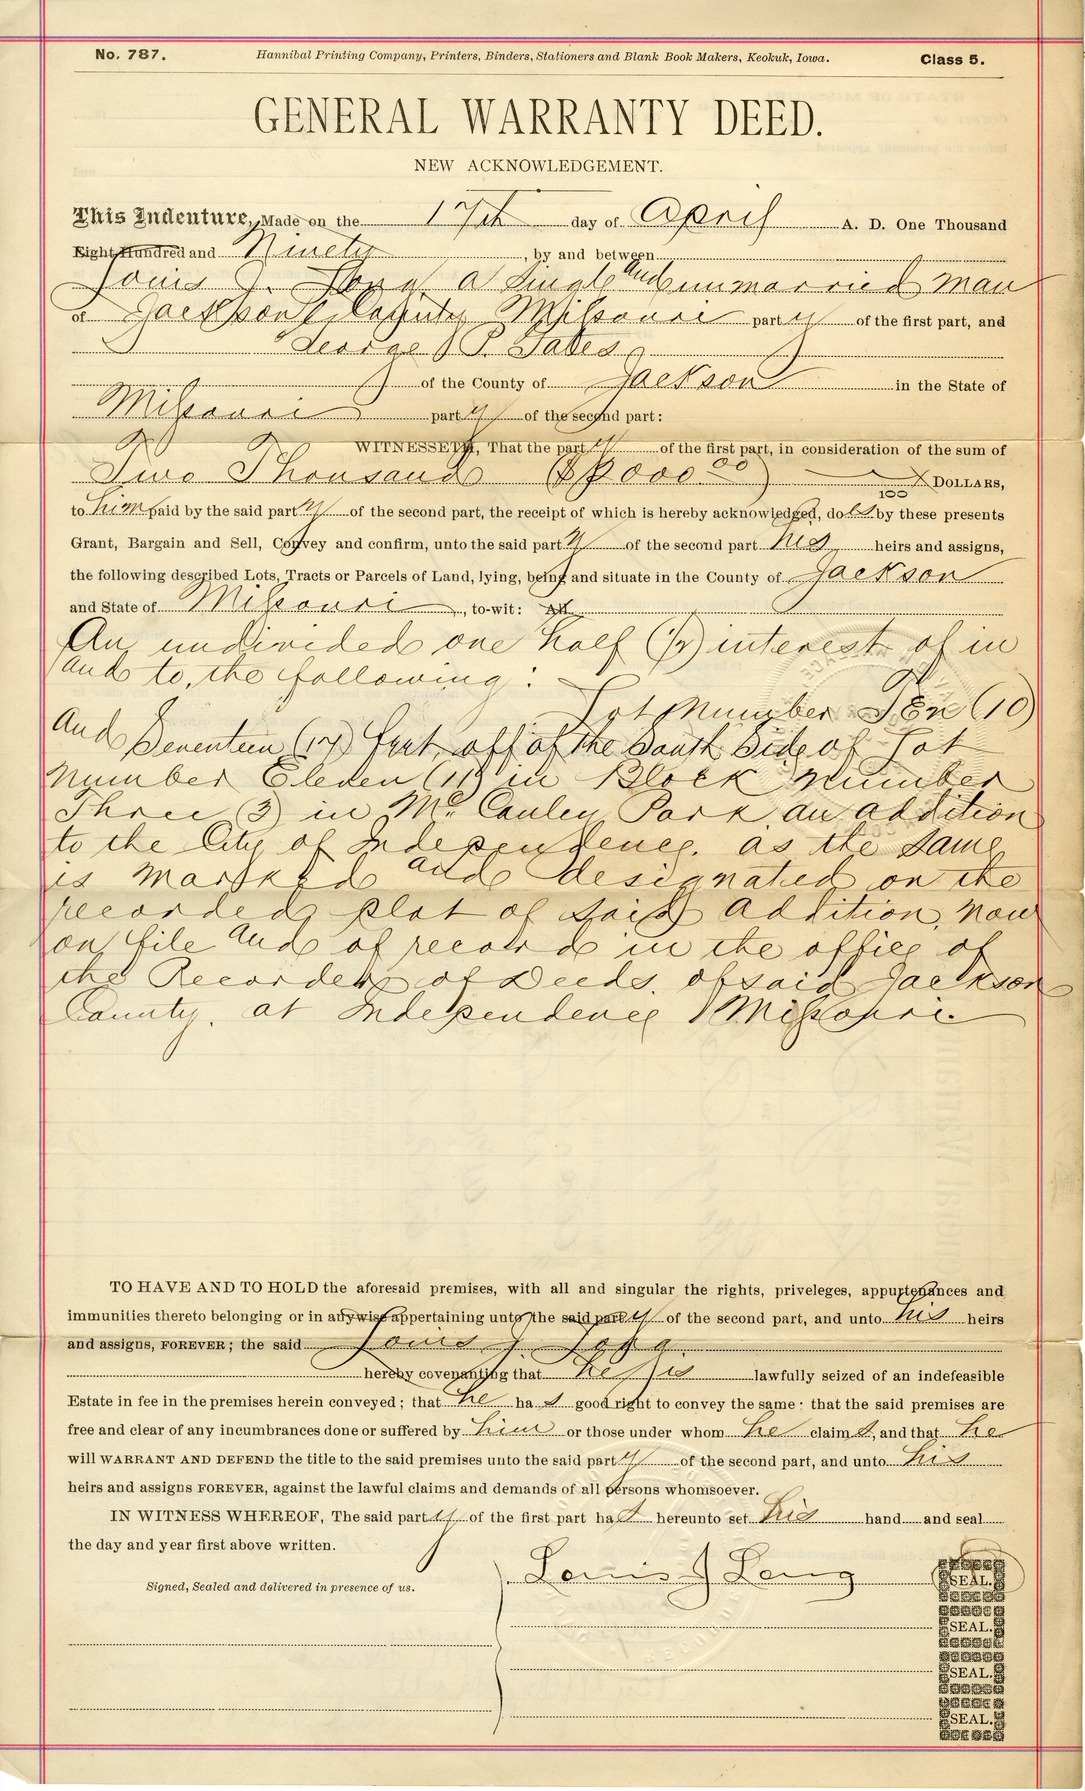 No. 787. Hannibal Printing Company, Printers, Binders, Stationers and Blank Book Makers, Keokuk, Iowa. Class 5.
GENERAL WARRANTY DEED.
NEW ACKNOWLEDGEMENT.
This Indenture, Made on the 17th day of April A. D. One Thousand
Eight Hundred and Ninety, by and between
Louis J. Long a single and unmarried man
of Jackson County Missouri party of the first part, and
George P. Gates
of the County of Jackson in the State of
Missouri party of the second part:
WITNESSETH, That the party of the first part, in consideration of the sum of
Two Thousand ($2000.00) X/100 DOLLARS,
to him paid by the said party of the second part, the receipt of which is hereby acknowledged, does by these presents
Grant, Bargain and Sell, Convey and confirm, unto the said party of the second part his heirs and assigns,
the following described Lots, Tracts or Parcels of Land, lying, being and situate in the County of Jackson
and State of Missouri, to-wit: All
An undivided one half (1/2) interest of in
and to, the following:
Lot Number Ten (10)
and Seventeen (17) feet off of the South Side of Lot
Number Eleven (11) in Block Number
Three (3) in McCauley Park an addition
to the City of Independence. as the same
is marked and designated on the
recorded plat of said Addition, now
on file and of record in the office of
the Recorder of Deeds. of said Jackson
County. at Independence Missouri.
TO HAVE AND TO HOLD the aforesaid premises, with all and singular the rights, priveleges, appurtenances and
immunities thereto belonging or in anywise appertaining unto the said party of the second part, and unto his heirs
and assigns, FOREVER; the said Louis J. Long
hereby covenanting that he is lawfully seized of an indefeasible
Estate in fee in the premises herein conveyed; that he has good right to convey the same; that the said premises are
free and clear of any incumbrances done or suffered by him or those under whom he claims, and that he
will WARRANT AND DEFEND the title to the said premises unto the said party of the second part, and unto his
heirs and assigns FOREVER, against the lawful claims and demands of all persons whomsoever.
IN WITNESS WHEREOF, The said party of the first part has hereunto set his hand and seal
the day and year first above written.
Louis J Long SEAL.
Signed, Sealed and delivered in presence of us.
SEAL.
SEAL.
SEAL.